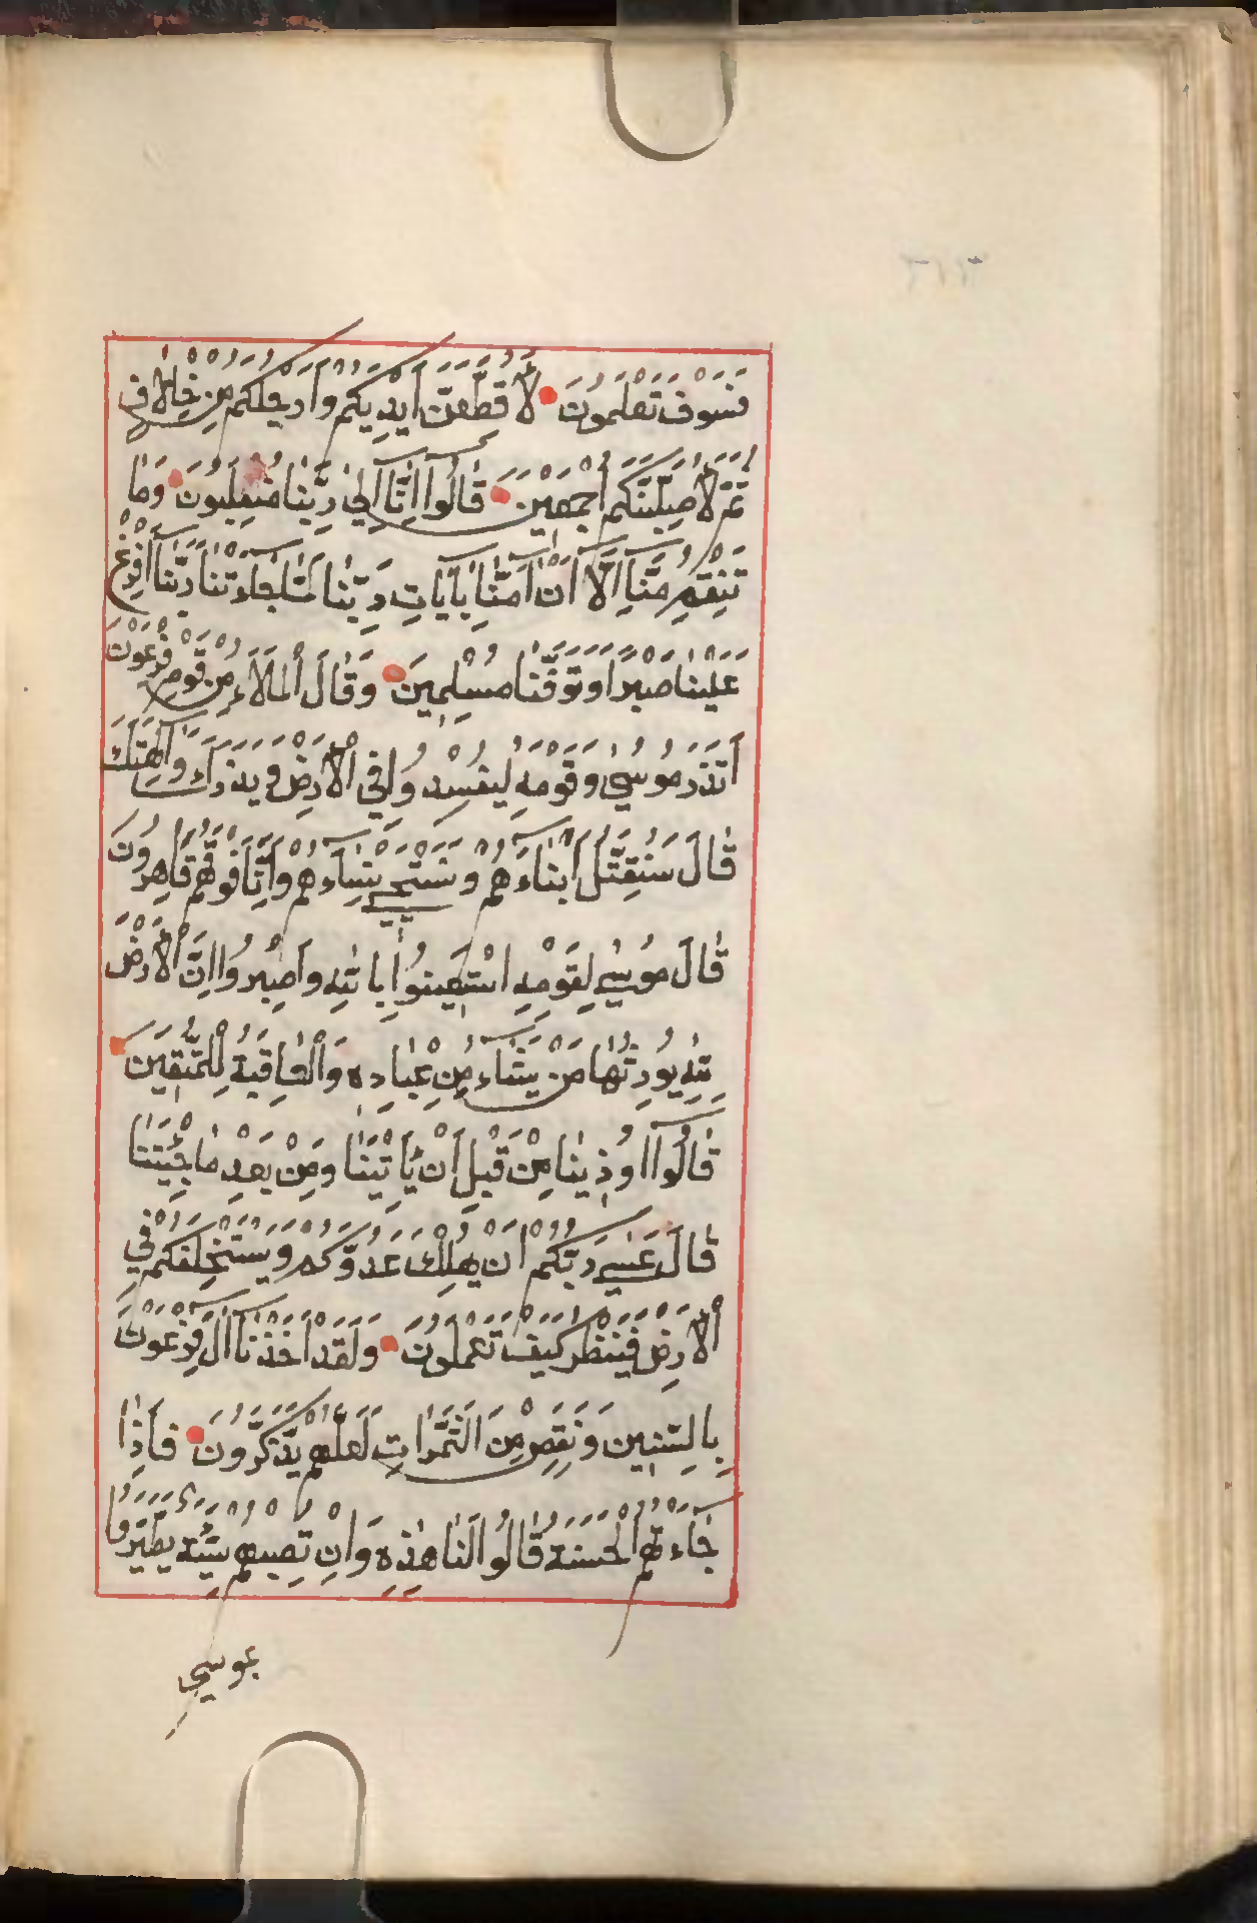 فَسَوْفَ تَعْلَمُونَ لَأُقَطِّعَنَّ أَيْدِيَكُمْ وَأَرْجُلَكُمْ مِنْ خِلَافٍ
ثُمَّ لَأُصَلِّبَنَّكُمْ أَجْمَعِينَ قَالُوا إِنَّا إِلَى رَبِّنَا مُنْقَلِبُونَ وَمَا
تَنْقِمُ مِنَّا إِلَّا أَنْ آمَنَّا بِآيَاتِ رَبِّنَا لَمَّا جَاءَتْنَا رَبَّنَا أَفْرِغْ
عَلَيْنَا صَبْرًا وَتَوَفَّنَا مُسْلِمِينَ وَقَالَ الْمَلَأُ مِنْ قَوْمِ فِرْعَوْنَ
أَتَذَرُ مُوسَى وَقَوْمَهُ لِيُفْسِدُوا فِي الْأَرْضِ وَيَذَرَكَ وَآلِهَتَكَ
قَالَ سَنُقَتِّلُ أَبْنَاءَهُمْ وَنَسْتَحْيِي نِسَاءَهُمْ وَإِنَّا فَوْقَهُمْ قَاهِرُونَ
قَالَ مُوسَى لِقَوْمِهِ اسْتَعِينُوا بِاللَّهِ وَاصْبِرُوا إِنَّ الْأَرْضَ
لِلَّهِ يُورِثُهَا مَنْ يَشَاءُ مِنْ عِبَادِهِ وَالْعَاقِبَةُ لِلْمُتَّقِينَ
قَالُوا أُوذِينَا مِنْ قَبْلِ أَنْ تَأْتِيَنَا وَمِنْ بَعْدِ مَا جِئْتَنَا
قَالَ عَسَى رَبُّكُمْ أَنْ يُهْلِكَ عَدُوَّكُمْ وَيَسْتَخْلِفَكُمْ فِي
الْأَرْضِ فَيَنْظُرَ كَيْفَ تَعْمَلُونَ وَلَقَدْ أَخَذْنَا آلَ فِرْعَوْنَ
بِالسِّنِينَ وَنَقْصٍ مِنَ الثَّمَرَاتِ لَعَلَّهُمْ يَذَّكَّرُونَ فَإِذَا
جَاءَتْهُمُ الْحَسَنَةُ قَالُوا لَنَا هَذِهِ وَإِنْ تُصِبْهُمْ سَيِّئَةٌ يَطَّيَّرُوا
بموسى